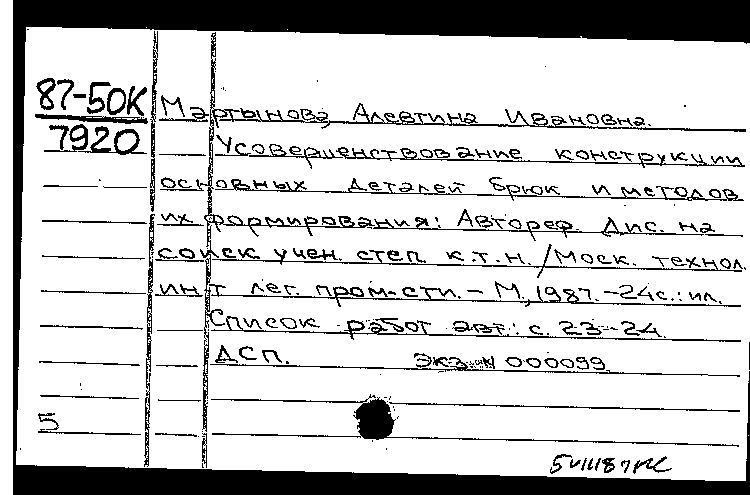 87-50К
7920
Мартынова Алевтина Ивановна.
Усовершенствование конструкции
основных деталей брюк и методов
их формирования: Автореф. Дис. на
соиск. учен. степ. к.т.н. / Моск. технол.
ин-т лег. пром-сти. – М, 1987. – 24с.: ил.
Список работ авт.: с. 23-24
ДСП. Экз. N 000099
5